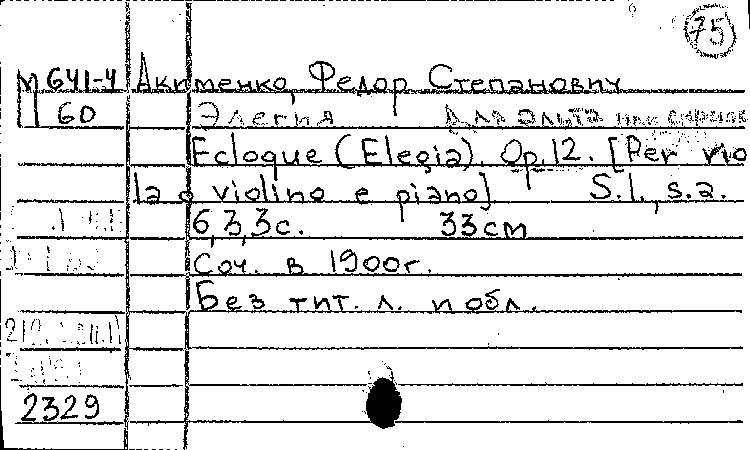 75
М 641-4 Акименко, Федор Степанович
60 Элегия для альта или скрипк
Ecloque (Elegia). Op. 12. [Per vio
la o violino e piano] S.l., s.a.
6,3,3с. 33см
Соч. в 1900г.
Без тит. л. и обл.
2329